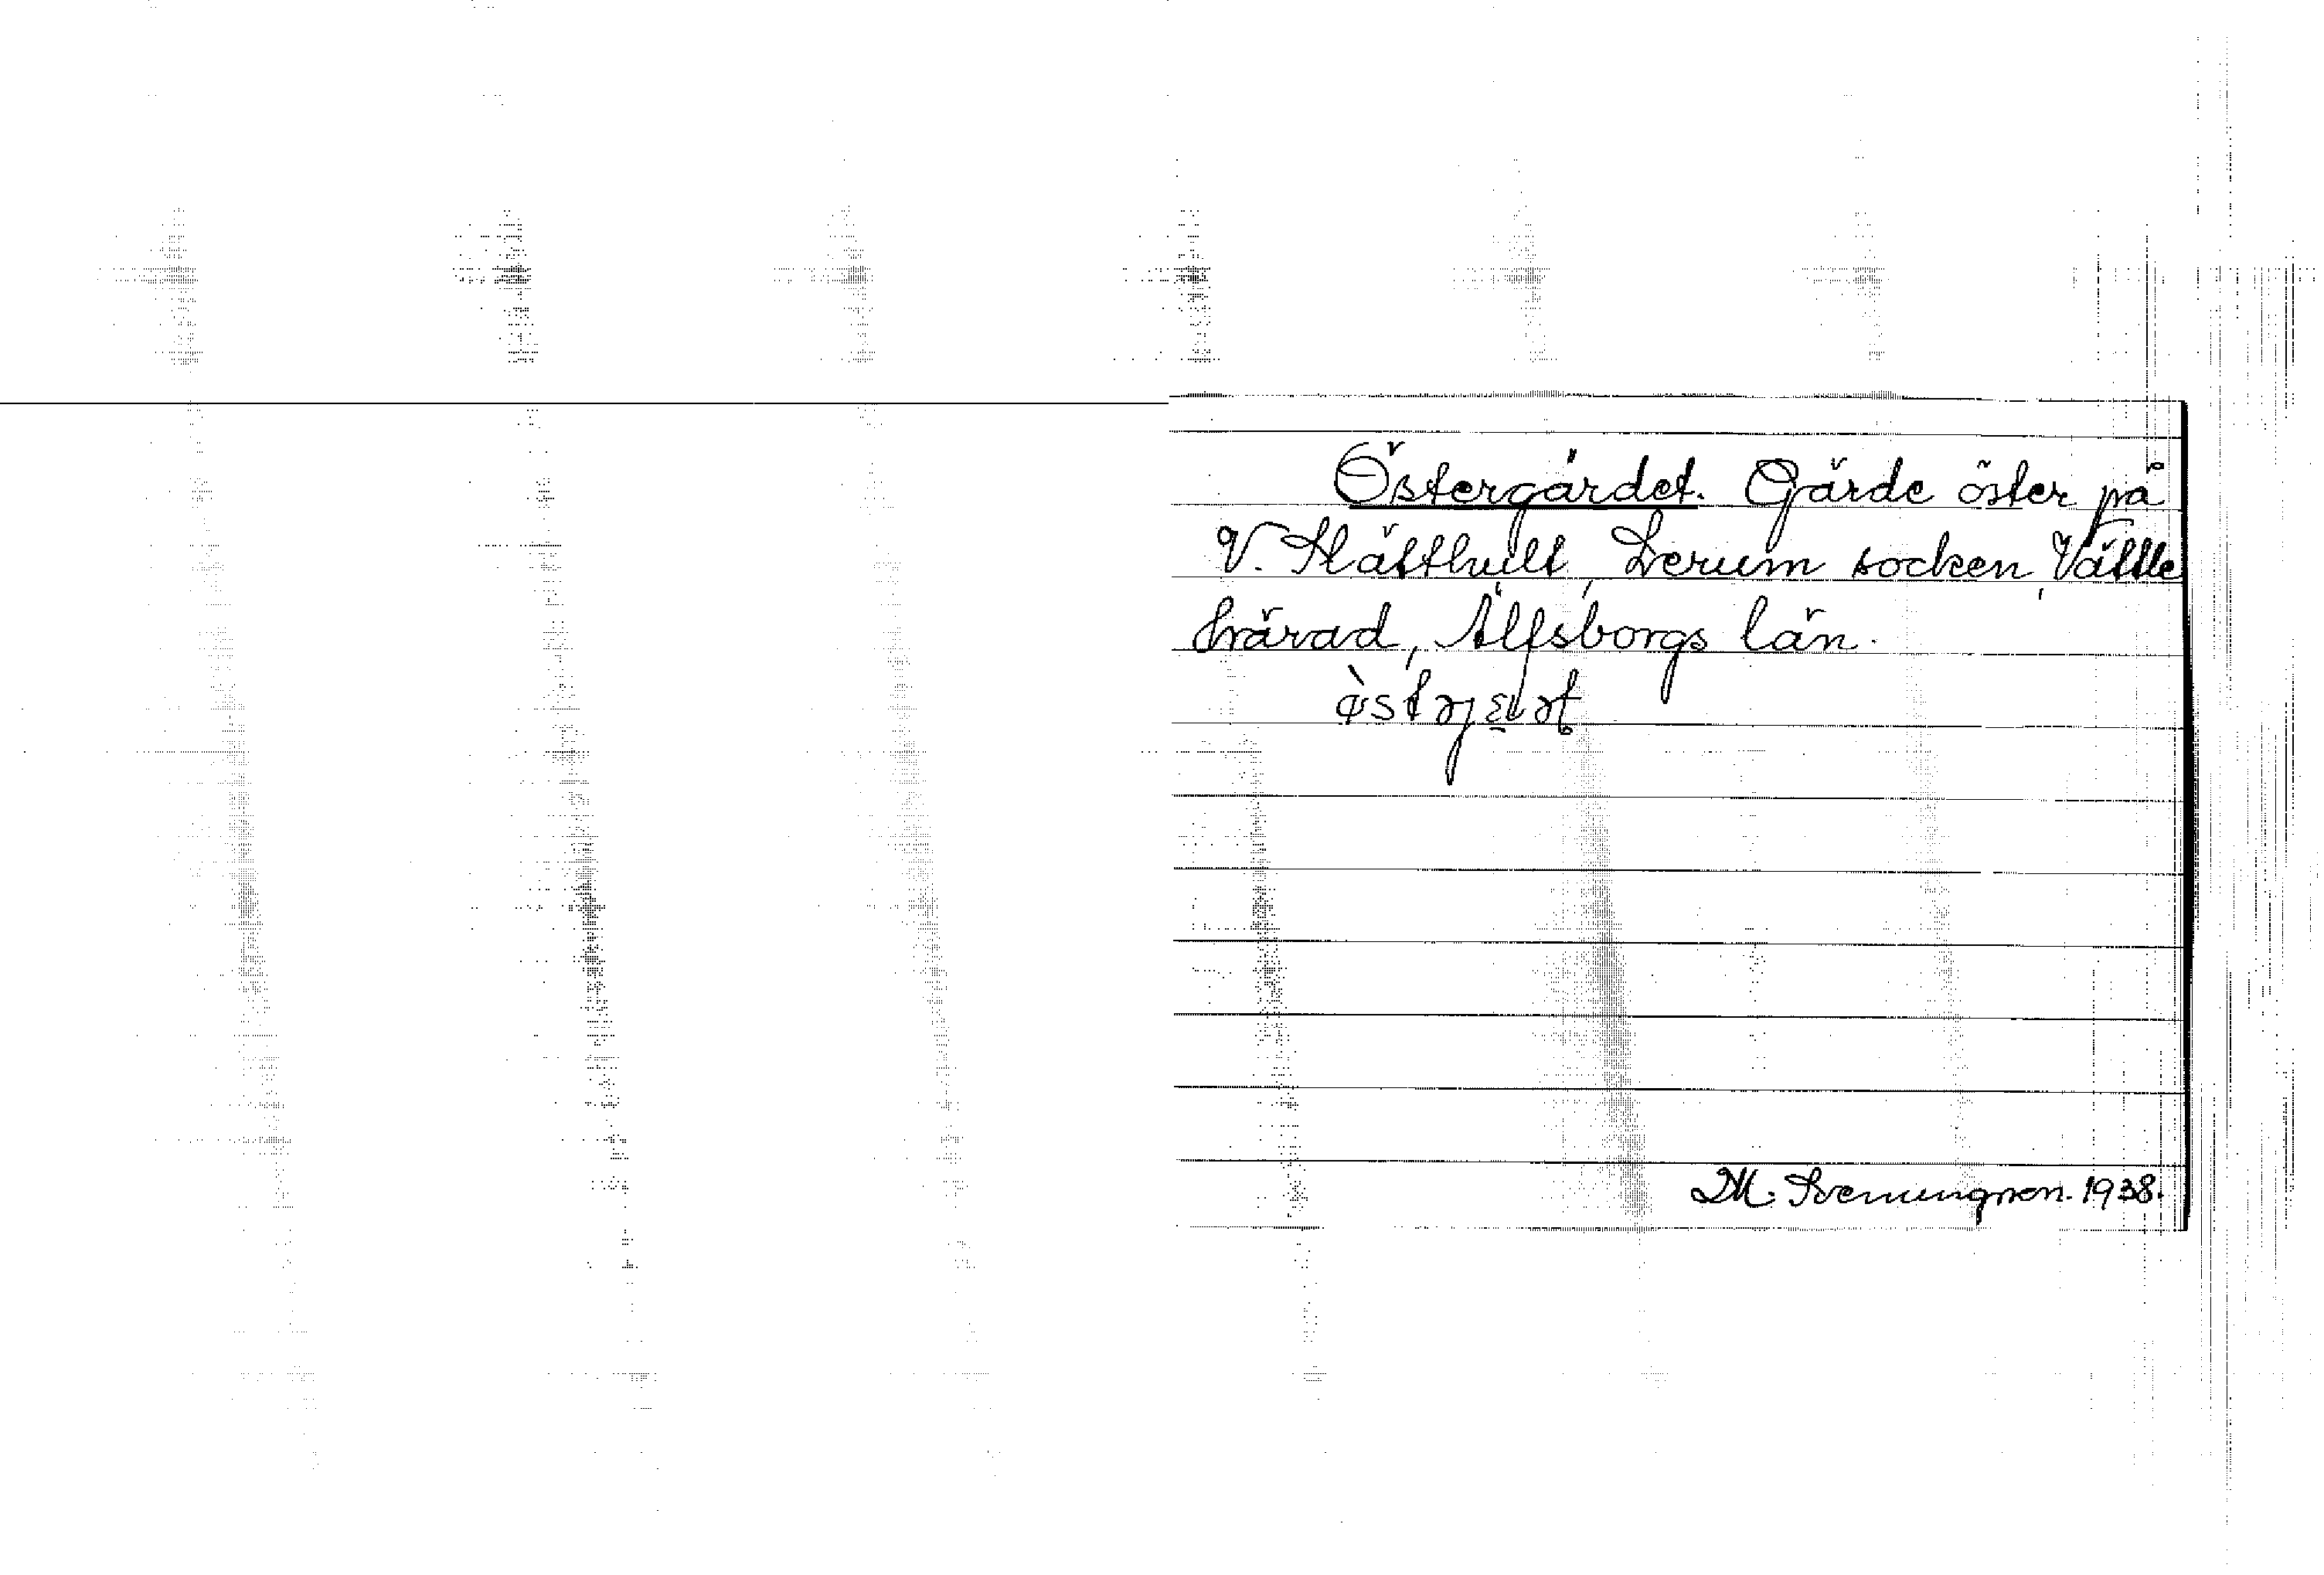 Östergärdet. Gärde öster på
V. Slätthult, Lerum socken, Vättle
härad, Älfsborgs län.
M. Svenungsson. 1938.